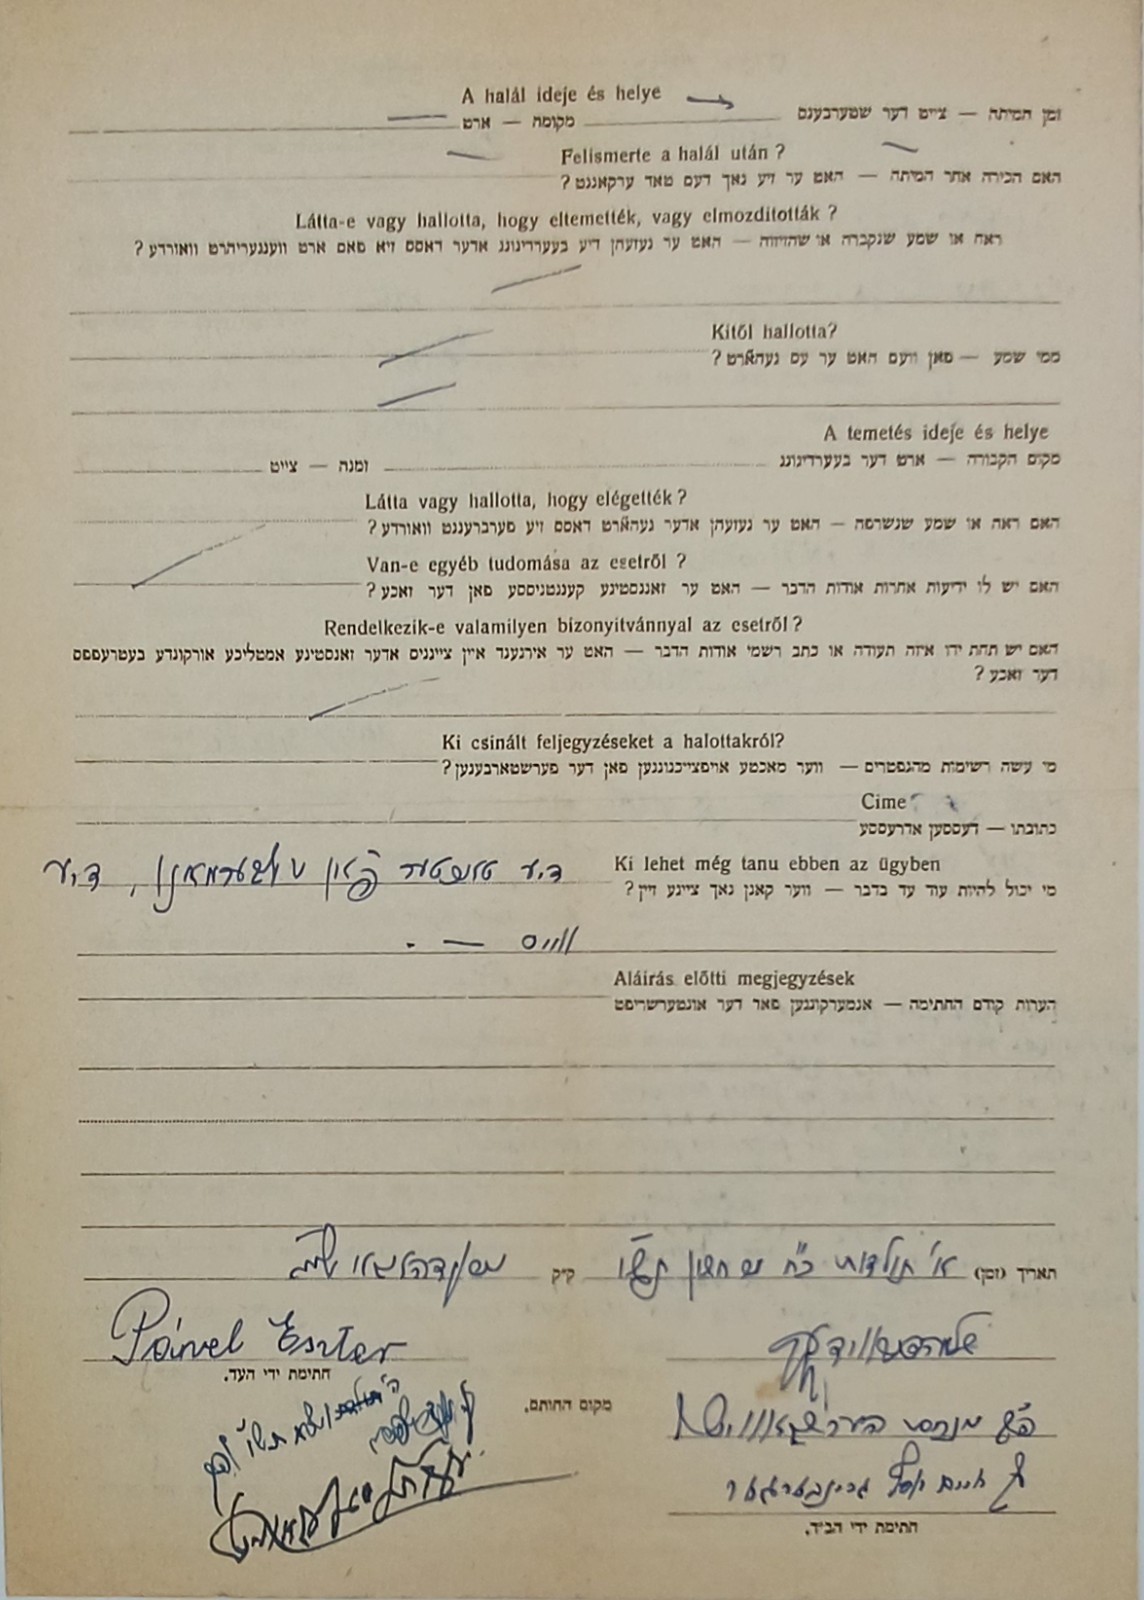 A halál ideje és helye
זמן המיתה — צייט דער שטערבענס מקומה — ארט
Felismerte a halál után ?
האם הכירה אחר המיתה — האט ער זיע נאך דעם טאד ערקאננט ?
Látta-e vagy hallotta, hogy eltemették, vagy elmozdították ?
ראה או שמע שנקברה או שהזיזוה — האט ער געזעהן דיע בעערדיגונג אדער דאסס זיא פאם ארט וועגגעריהרט וואורדע ?
Kitől hallotta?
ממי שמע — פאן וועם האט ער עס געהארט ?
A temetés ideje és helye
מקום הקבורה — ארט דער בעערדיגונג זמנה — צייט
Látta vagy hallotta, hogy elégették ?
האם ראה או שמע שנשרפה — האט ער געזעהן אדער געהארט דאסס זיע פערברעננט וואורדע ?
Van-e egyéb tudomása az esetről ?
האם יש לו ידיעות אחרות אודות הדבר — האט ער זאנסטיגע קענטניססע פאן דער זאכע ?
Rendelkezik-e valamilyen bizonyitvánnyal az esetről ?
האם יש תחת ידו איזה תעודה או כתב רשמי אודות הדבר — האט ער אירגענד איין צייגניס אדער זאנסטיגע אמטליכע אורקונדע בעטרעפפס
דער זאכע ?
Ki csinált feljegyzéseket a halottakról?
מי עשה רשימות מהנפטרים — ווער מאכטע אויפצייכנונגען פאן דער פערשטארבענען ?
Cime
כתובתו — דעססען אדרעססע
Ki lehet még tanu ebben az ügyben
מי יכול להיות עוד עד בדבר — ווער קאנן נאך צייגע זיין ?
דיע טאכטער פון זילבערמאנן, דיע
ווייס — .
Aláirás előtti megjegyzések
הערות קודם החתימה — אנמערקונגען פאר דער אונטערשריפט
תאריך (זמן) א' תולדות כ"ח חשון תש"ו ק״ק
Páivel Eszter
חתימת ידי העד.
מקום החותם.
חיים יוסף גרינבערגער
חתימת ידי הב״ד.